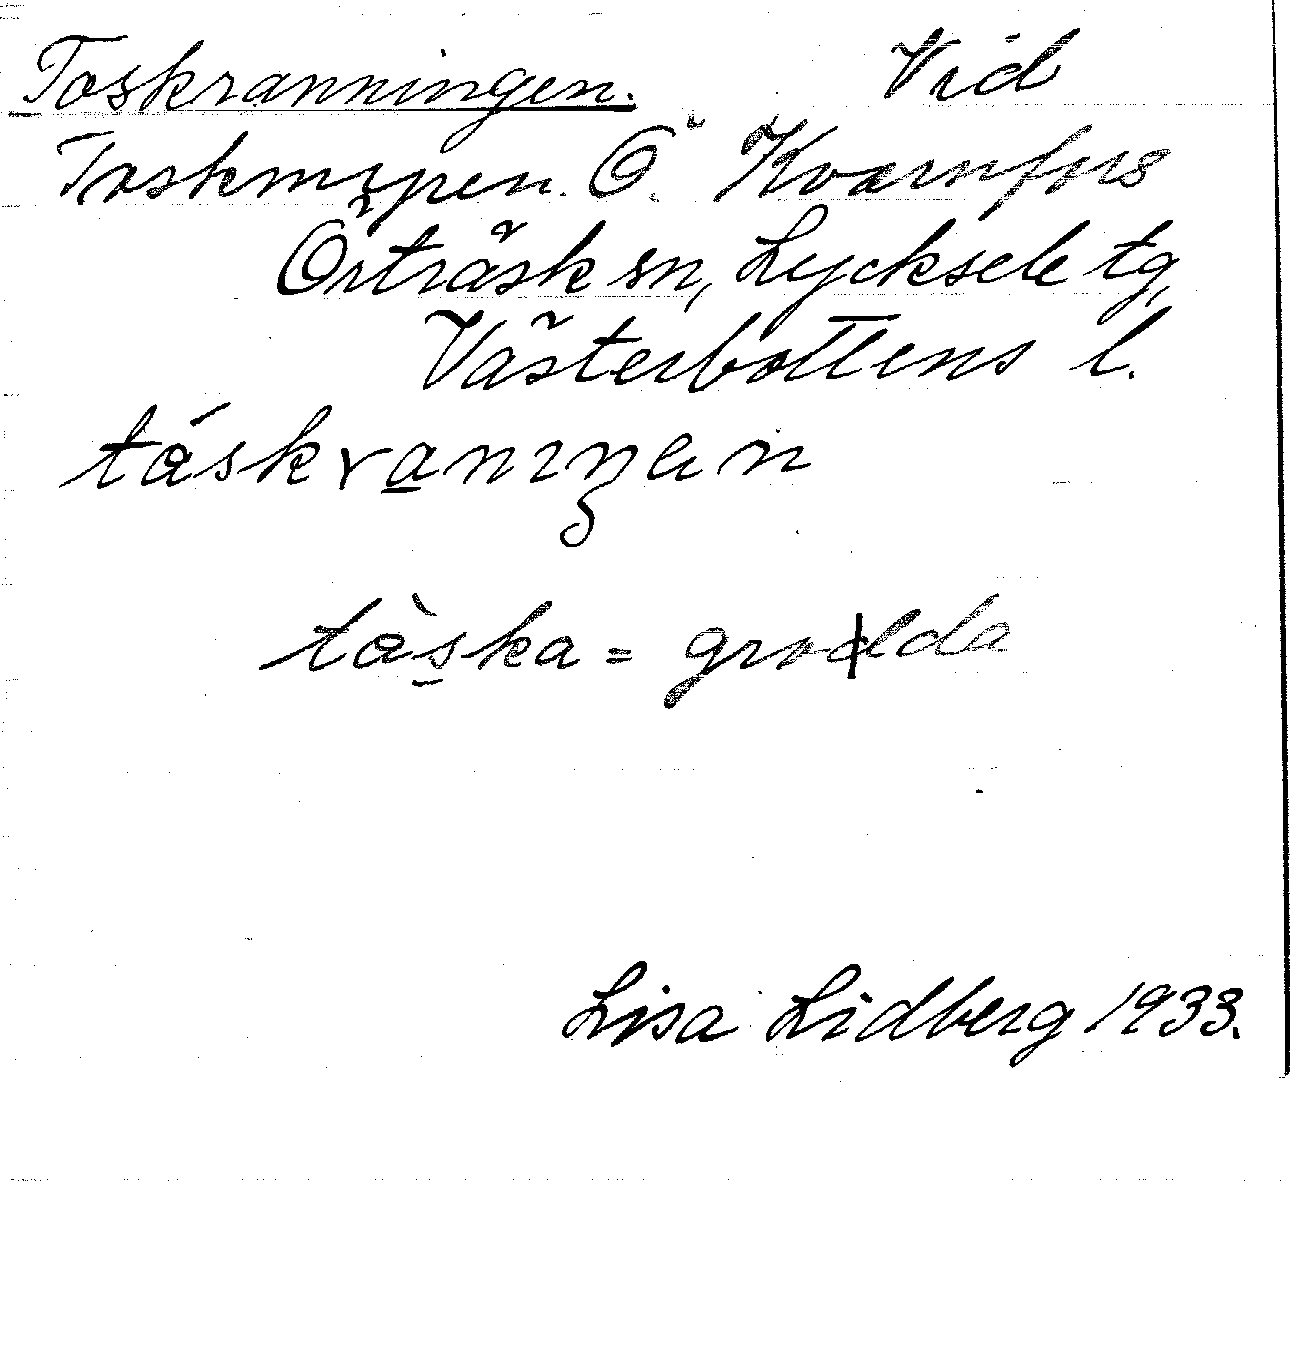 Toskranningen. Vid
Toskmyren. Ö. Kvarnfors
Örträsk sn, Lycksele tg,
Västerbottens l.
tåskranıŋen
tåska = grodda
Lisa Lidberg 1933.